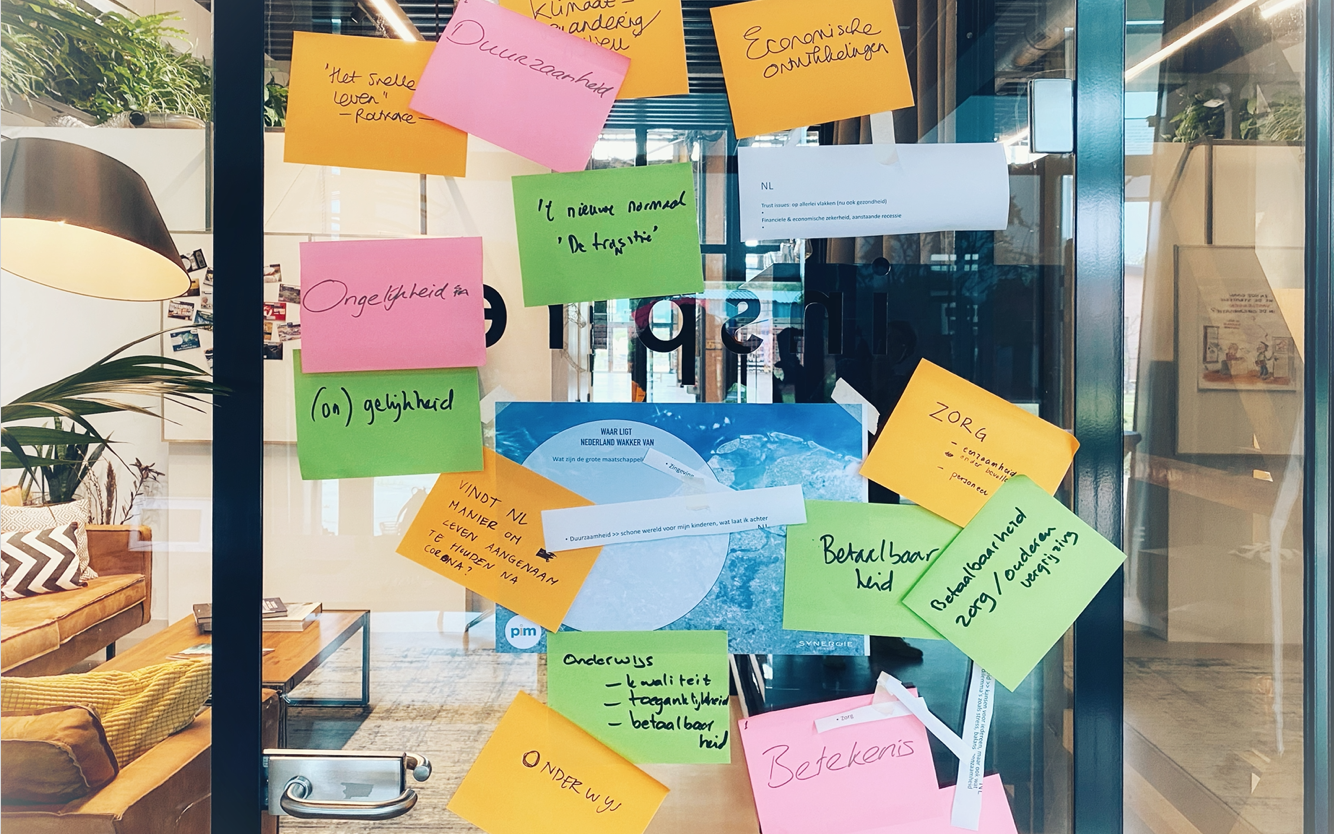 Klimaat-
'Het snelle
leven"
- Ratrace -
Duurzaamheid
Economische
ontwikkelingen
NL
Trust issues: op allerlei vlakken (nu ook gezondheid)
•
Financiele & economische zekerheid, aanstaande recessie
•
't nieuwe normaal
'De transitie'
Ongelijkheid
(on) gelijkheid
WAAR LIGT
NEDERLAND WAKKER VAN
Wat zijn de grote maatschappel
• Zingeving
• Duurzaamheid >> schone wereld voor mijn kinderen, wat laat ik achter
NL
VINDT NL
MANIER OM
LEVEN AANGENAAM
TE HOUDEN NA
CORONA?
ZORG
- eenzaamheid
onder bevolk
- personeel
Betaalbaar
heid
Betaalbaarheid
zorg / ouderen
vergrijzing
pim
SYNERGIE
Onderwijs
- kwaliteit
- toegankelijkheid
- betaalbaar
heid
ONDERWIJS
• Zorg
Betekenis